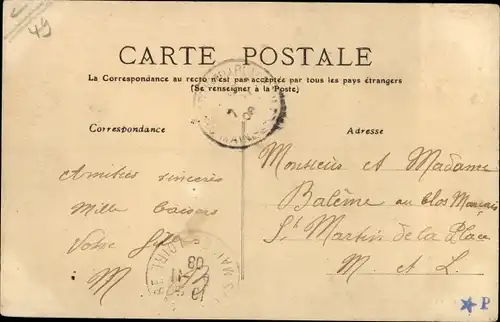 49
CARTE POSTALE
La Correspondance au recto n'est pas acceptée par tous les pays étrangers
(Se renseigner à la Poste)
Correspondance
Adresse
Amitiés sincères
Mille baisers
Votre
M
Monsieur et Madame
Balème au Clos
St Martin de la Place
M. et L.
08
11
19
P